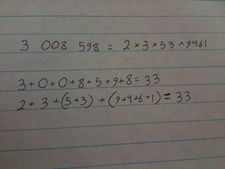 3 008 598 = 2×3×53×9461
3+0+0+8+5+9+8=33
2+3+(5+3)+(9+4+6+1)=33